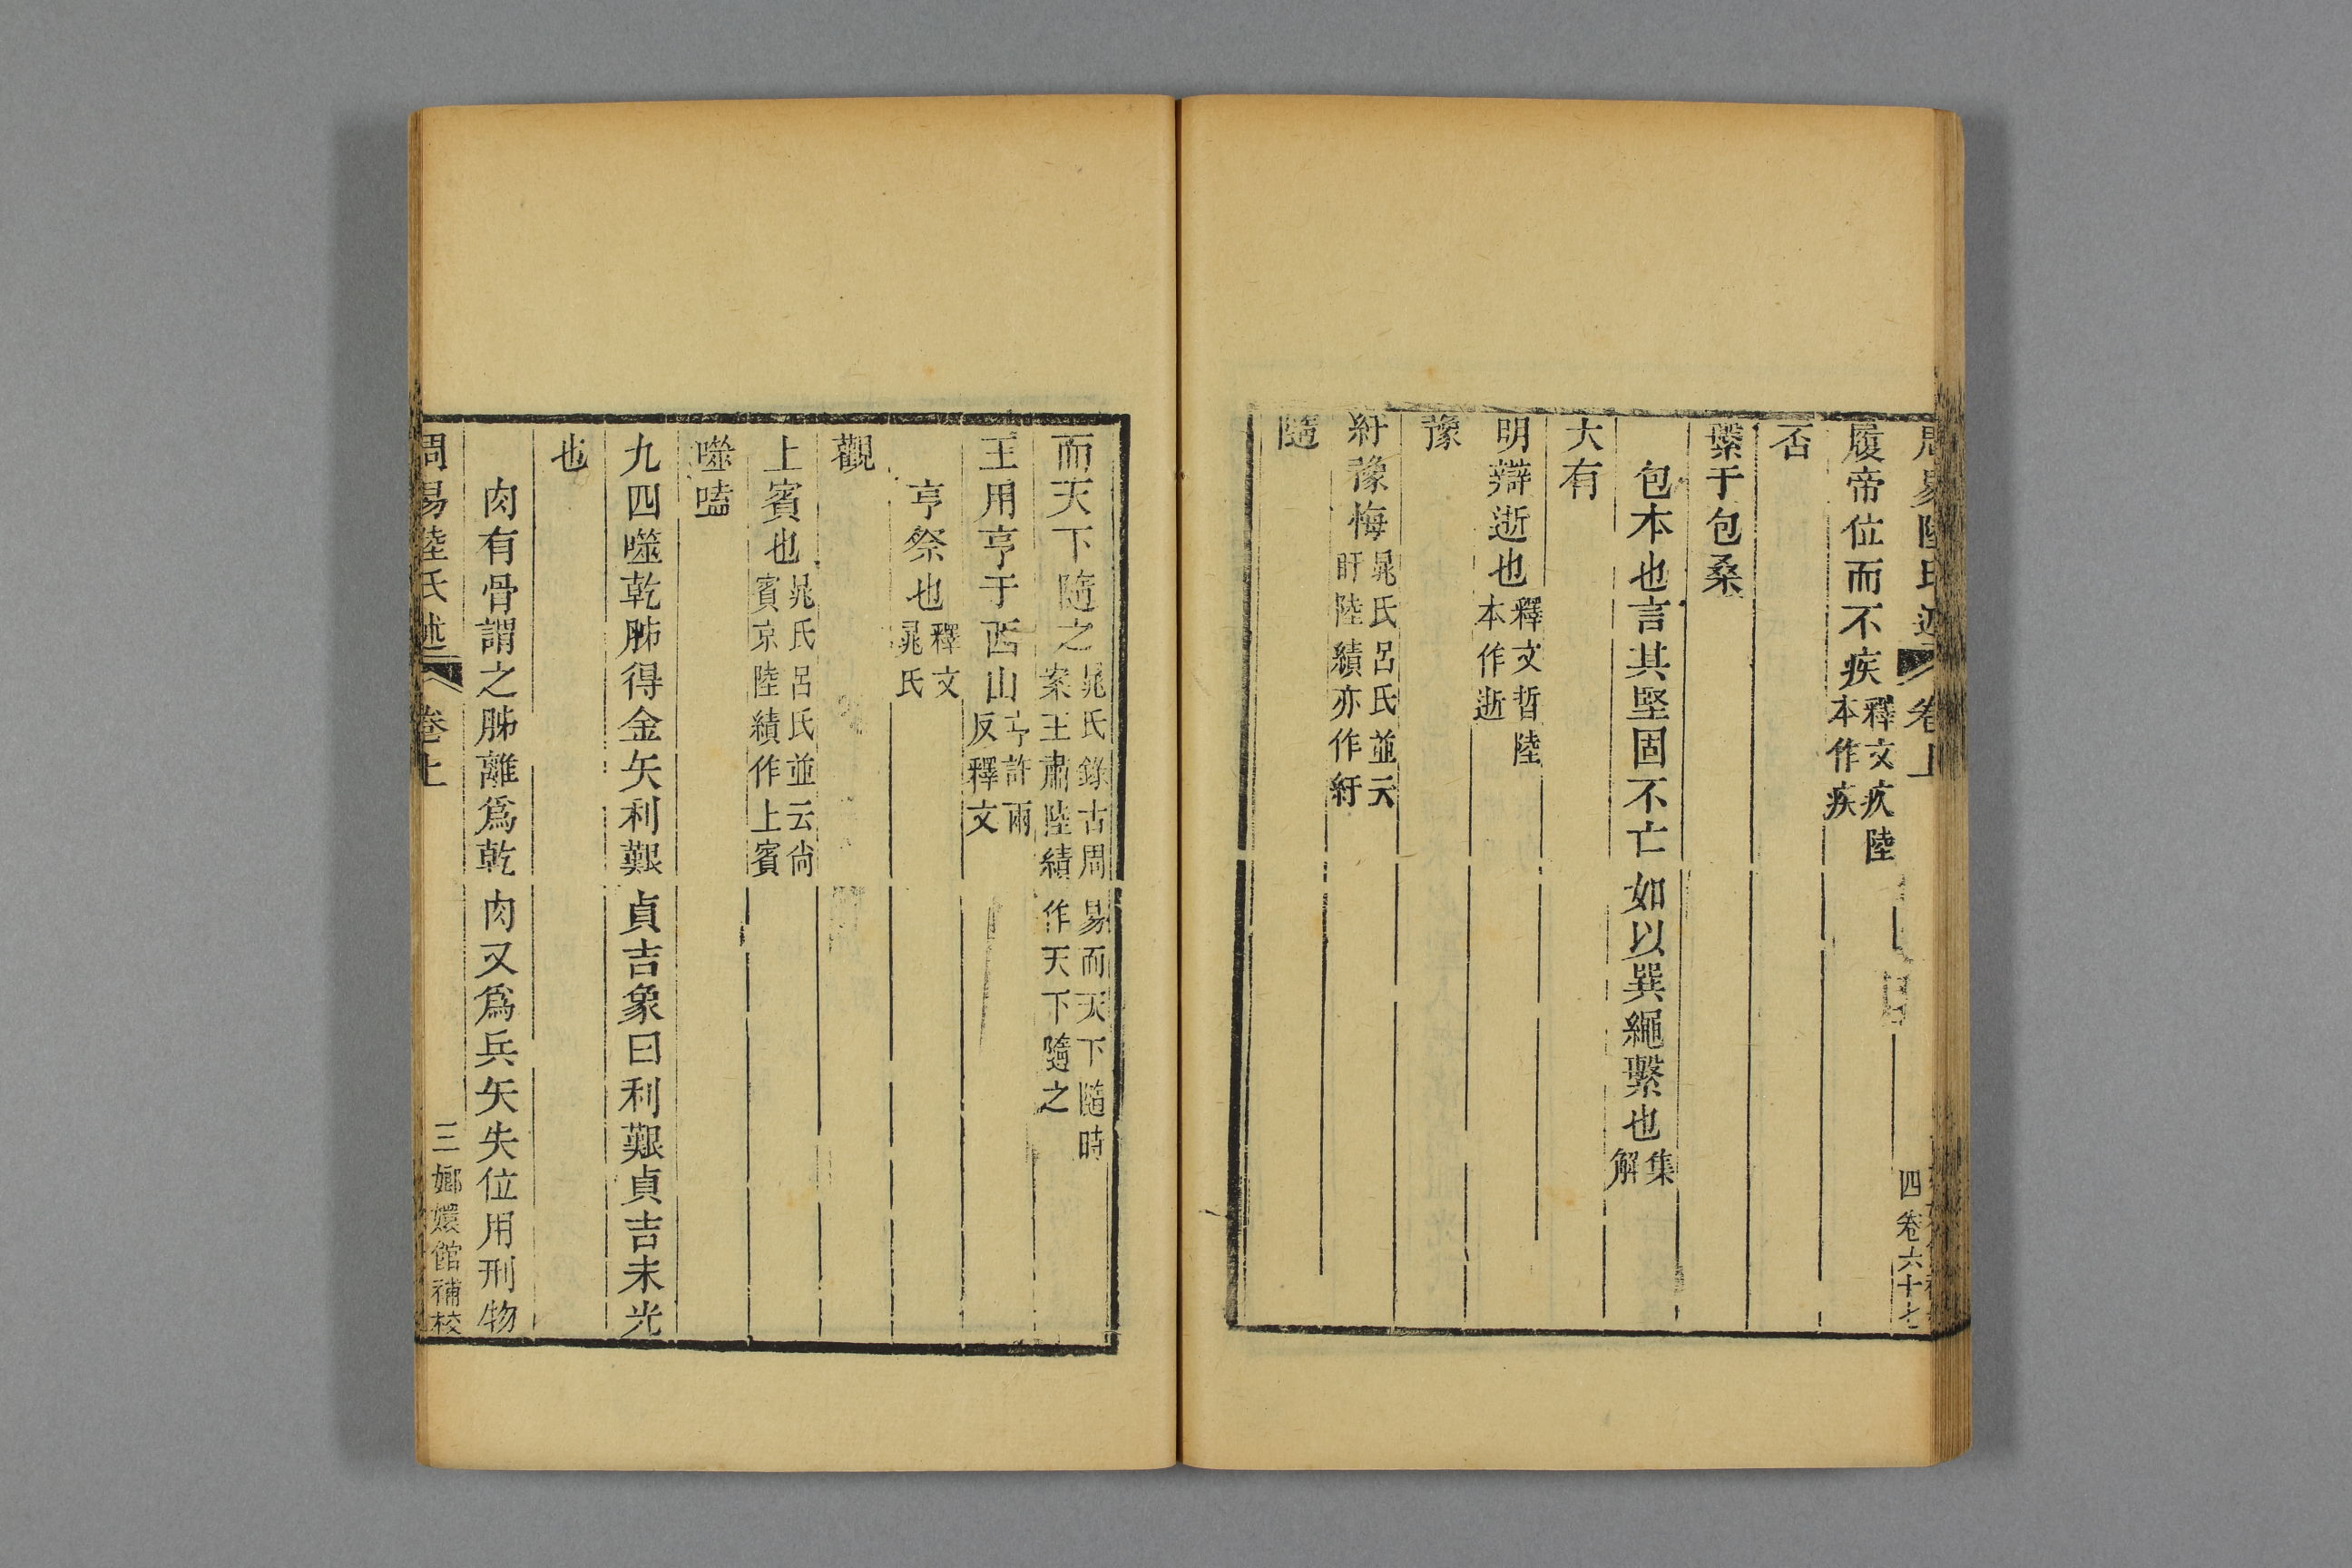 周易陸氏述 卷上 四 卷六十七
履帝位而不疾釋文疚陸本作疾
否
繫于包桑
包本也言其堅固不亡如以巽繩繫也集解
大有
明辯逝也釋文晢陸本作逝
豫
紆豫悔晁氏呂氏並云盱陸績亦作紆
隨
而天下隨之晁氏錄古周易而天下隨時案王肅陸績作天下隨之
王用亨于西山亨許兩反釋文
亨祭也釋文晁氏
觀
上賓也晁氏呂氏並云尙賓京陸績作上賓
噬嗑
九四噬乾胏得金矢利艱貞吉象曰利艱貞吉未光
也
肉有骨謂之胏離爲乾肉又爲兵矢失位用刑物
周易陸氏述 卷上 三 嫏嬛館補校